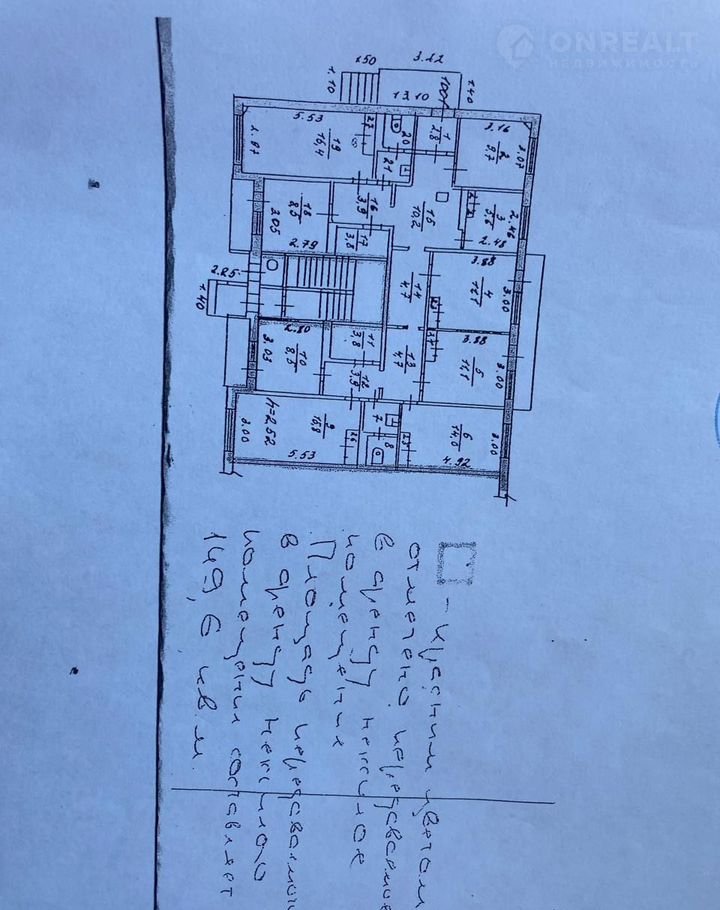 ONREALT
НЕДВИЖИМОСТЬ
1.50
3.42
1.10
1.40
1.00
1.31
0.10
5.53
19
16,4
1.87
20
21
1
1.8
3.16
2
9.7
3.07
18
8.5
3.05
2.79
16
3.9
17
3.8
15
10.2
3
5.6
2.46
2.43
2.25
1.40
14
4.7
3.88
4
11.5
3.00
2.80
10
8.5
3.03
11
3.8
12
3.9
13
4.7
3.88
5
11.5
3.00
h=2.52
9
16.8
3.00
5.53
7
8
6
14,0
3.00
4.92
- Красным цветом
отмечено передаваемое
в аренду нежилое
помещение
Площадь передаваемого
в аренду нежилого
помещения составляет
149,6 кв.м.